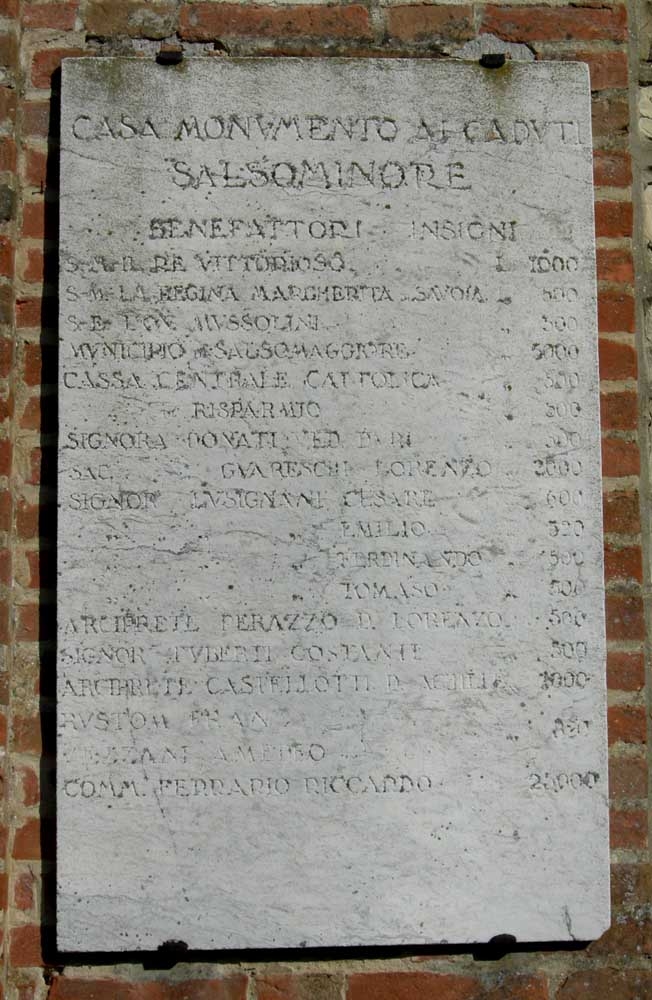 CASA MONVMENTO AI CADVTI
SALSOMINORE
BENEFATTORI INSIGNI
S. M. IL RE VITTORIOSO. L 1000
S. M. LA REGINA MARGHERITA SAVOIA „ 500
S. E. L'ON. MUSSOLINI „ 500
MVNICIPIO SALSOMAGGIORE „ 5000
CASSA CENTRALE CATTOLICA „ 500
RISPARMIO „ 300
SIGNORA DONATI VED. „ 500
SAC. GVARESCHI LORENZO „ 2000
SIGNOR LVSIGNANI CESARE „ 600
„ „ EMILIO „ 520
„ „ FERDINANDO „ 500
„ „ TOMASO „ 500
ARCIPRETE PERAZZO D. LORENZO „ 500
SIGNOR COSTANTE „ 500
ARCIPRETE CASTELLOTTI D. ACHILLE „ 1000
AMEDEO
COMM. FERRARIO RICCARDO „ 25000